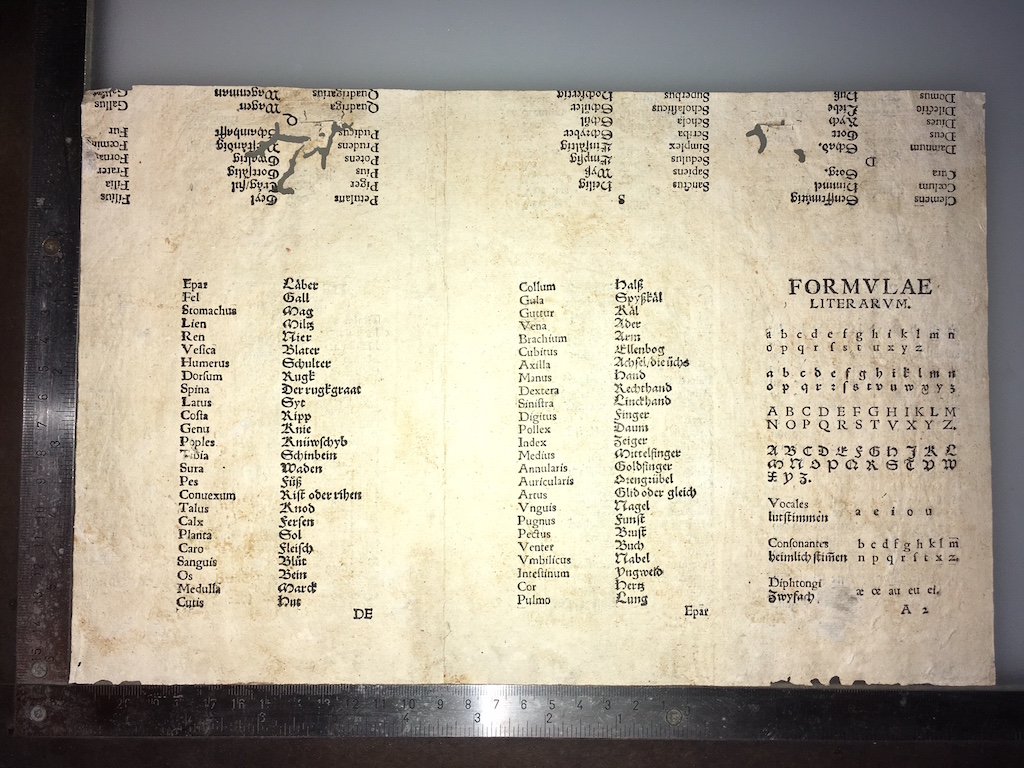 Clemens Senfftmütig
Cœlum Himmel
Cura Sorg.
D
Damnum Schad.
Deus Gott
Diues Rych
Dilectio Liebe
Domus Huß
S
Sanctus Heilig
Sapiens Wyß
Sedulus Emsig
Simplex Einfältig
Scriba Schryber
Schola Schül
Scholasticus Schüler
Superbus Hochfertig
Petularis Geyl
Piger Träg/ful
Pius Gottsälig
Potens Gwaltig
Prudens Verständig
Pudicus Schamhafft
Q
Quadriga Wagen
Quadrigarius Wagenman
Filius
Filia
Frater
Fur
Gallus
Epar Läber
Fel Gall
Stomachus Mag
Lien Miltz
Ren Nier
Vesica Blater
Humerus Schulter
Dorsum Rugk
Spina Der rugkgraat
Latus Syt
Costa Ripp
Genu Knie
Poples Knüwschyb
Tibia Schinbein
Sura Waden
Pes Füß
Conuexum Rist oder rihen
Talus Knod
Calx Fersen
Planta Sol
Caro Fleisch
Sanguis Blůt
Os Bein
Medulla Marck
Cutis Hut
DE
Collum Halß
Gula Spyßkäl
Guttur Käl
Vena Ader
Brachium Arm
Cubitus Ellenbog
Axilla Achsel/die üchs
Manus Hand
Dextera Rechthand
Sinistra Linckhand
Digitus Finger
Pollex Daum
Index Zeiger
Medius Mittelfinger
Annularis Goldfinger
Auricularis Orengrübel
Artus Glid oder gleich
Vnguis Nagel
Pugnus Funst
Pectus Brust
Venter Buch
Vmbilicus Nabel
Intestinum Yngweid
Cor Hertz
Pulmo Lung
Epar
FORMVLAE
LITERARVM.
a b c d e f g h i k l m n
o p q r ſ s t u x y z
a b c d e f g h i k l m n
o p q r ꝛ ſ s t v u w x y z
A B C D E F G H I K L M
N O P Q R S T V X Y Z.
A B C D E F G H J K L
M N O P Q R S T V W
X Y Z.
Vocales a e i o u
lutstimmen
Consonantes b c d f g h k l m
heimlich stim̄en n p q r ſ t x z.
Diphtongi æ œ au eu ei.
Zwyfach
A 2